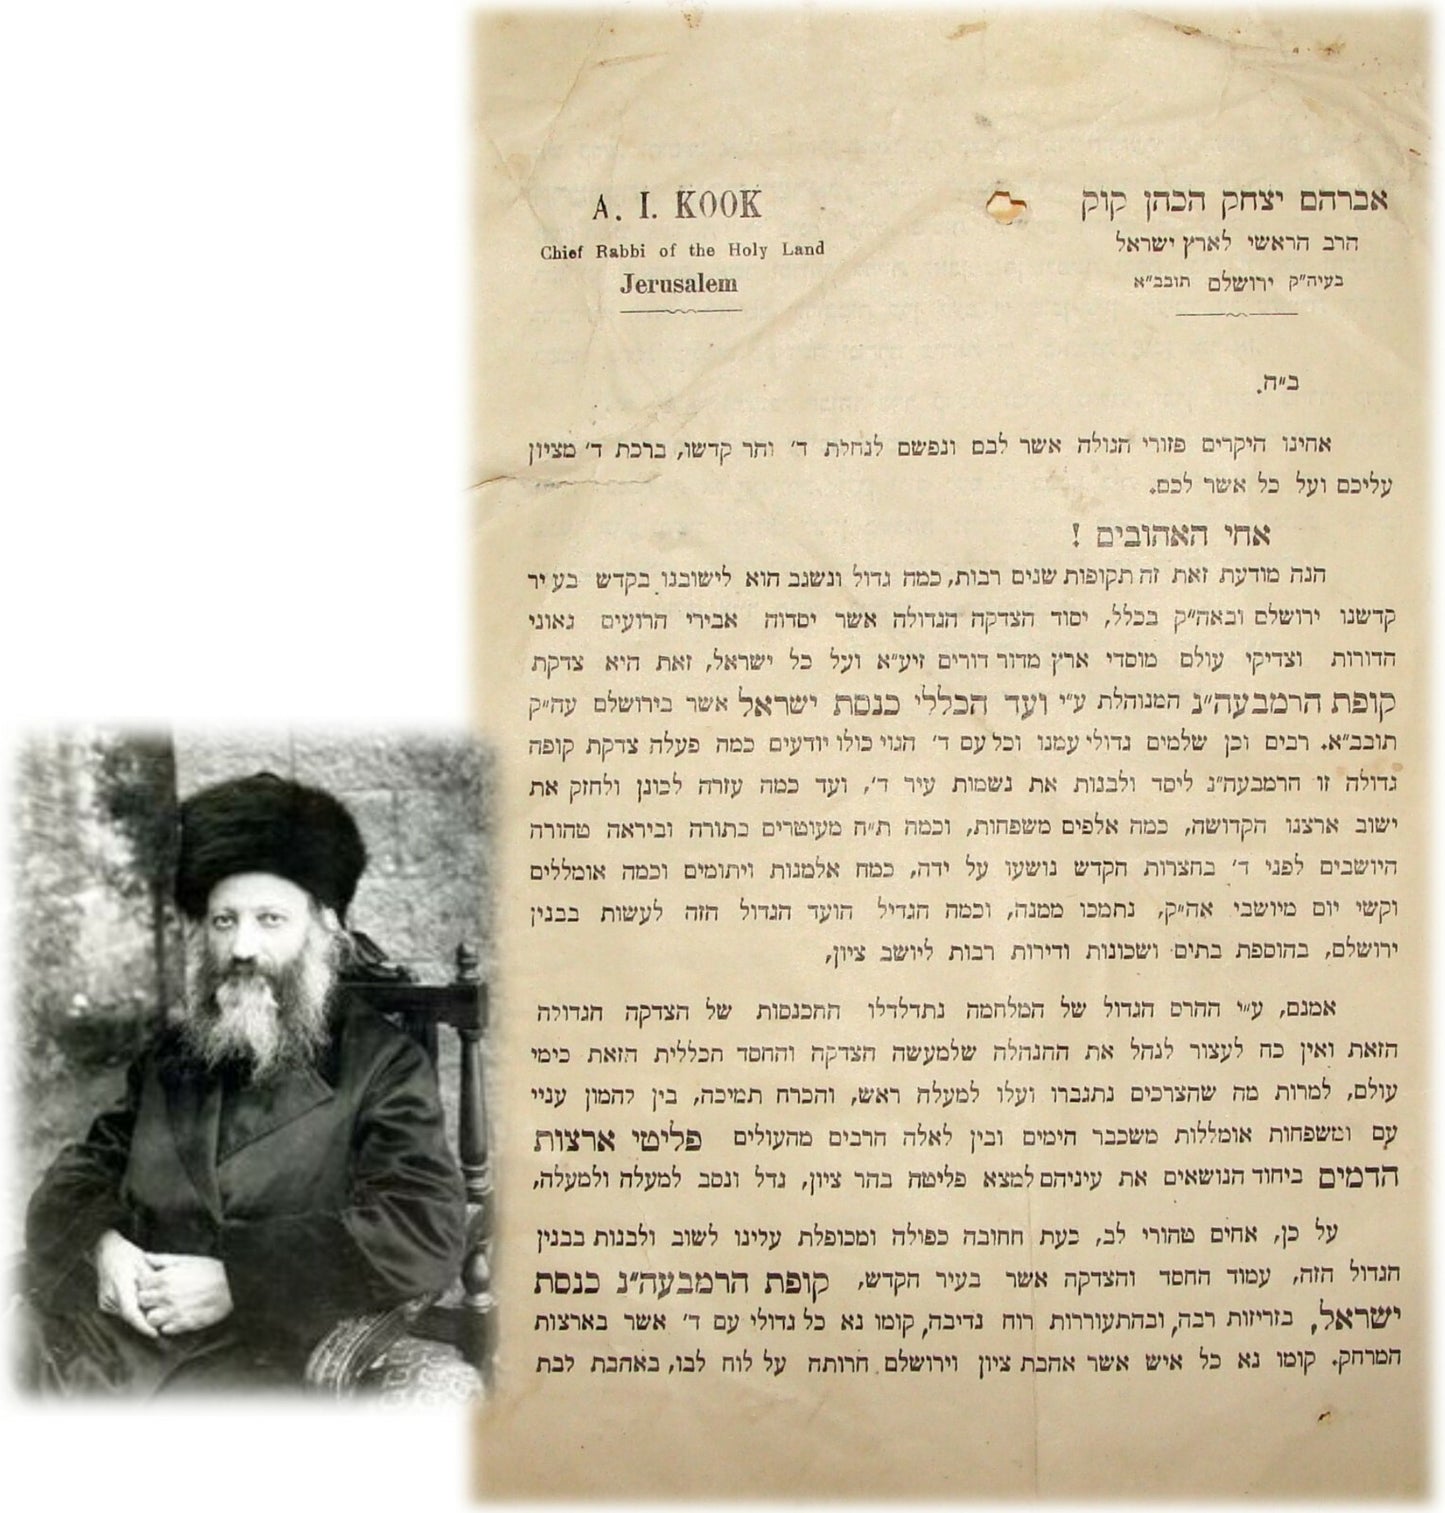 A. I. KOOK
Chief Rabbi of the Holy Land
Jerusalem
אברהם יצחק הכהן קוק
הרב הראשי לארץ ישראל
בעיה״ק ירושלם תובב״א
ב״ה.
אחינו היקרים פזורי הגולה אשר לבם ונפשם לנחלת ד׳ והר קדשו, ברכת ד׳ מציון
עליכם ועל כל אשר לכם.
אחי האהובים !
הנה מודעת זאת זה תקופות שנים רבות, כמה גדול ונשגב הוא לישובנו בקדש בעיר
קדשנו ירושלם ובאה״ק בכלל, יסוד הצדקה הגדולה אשר יסדוה אבירי הרועים גאוני
הדורות וצדיקי עולם מוסדי ארץ מדור דורים זיע״א ועל כל ישראל, זאת היא צדקת
קופת הרמבעה״נ המנוהלת ע״י ועד הכללי כנסת ישראל אשר בירושלם עה״ק
תובב״א. רבים וכן שלמים גדולי עמנו וכל עם ד׳ הגוי כולו יודעים כמה פעלה צדקת קופה
גדולה זו הרמבעה״נ ליסד ולבנות את נשמות עיר ד׳, ועד כמה עזרה לכונן ולחזק את
ישוב ארצנו הקדושה, כמה אלפים משפחות, וכמה ת״ח מעוטרים בתורה וביראה טהורה
היושבים לפני ד׳ בחצרות הקדש נושעו על ידה, כמה אלמנות ויתומים וכמה אומללים
וקשי יום מיושבי אה״ק, נתמכו ממנה, וכמה הגדיל הועד הגדול הזה לעשות בבנין
ירושלם, בהוספת בתים ושכונות ודירות רבות ליושב ציון,
אמנם, ע״י ההרס הגדול של המלחמה נתדלדלו ההכנסות של הצדקה הגדולה
הזאת ואין כח לעצור לנהל את ההנהלה שלמעשה הצדקה והחסד הכללית הזאת כימי
עולם, למרות מה שהצרכים נתגברו ועלו למעלה ראש, והכרח תמיכה, בין להמון עניי
עם ומשפחות אומללות משכבר הימים ובין לאלה הרבים מהעולים פליטי ארצות
הדמים ביחוד הנושאים את עיניהם למצא פליטה בהר ציון, גדל ונסב למעלה ולמעלה,
על כן, אחים טהורי לב, כעת החובה כפולה ומכופלת עלינו לשוב ולבנות בבנין
הגדול הזה, עמוד החסד והצדקה אשר בעיר הקדש, קופת הרמבעה״נ כנסת
ישראל, בזריזות רבה, ובהתעוררות רוח נדיבה, קומו נא כל גדולי עם ד׳ אשר בארצות
המרחק. קומו נא כל איש אשר אהבת ציון וירושלם חרותה על לוח לבו, באהבת לבת